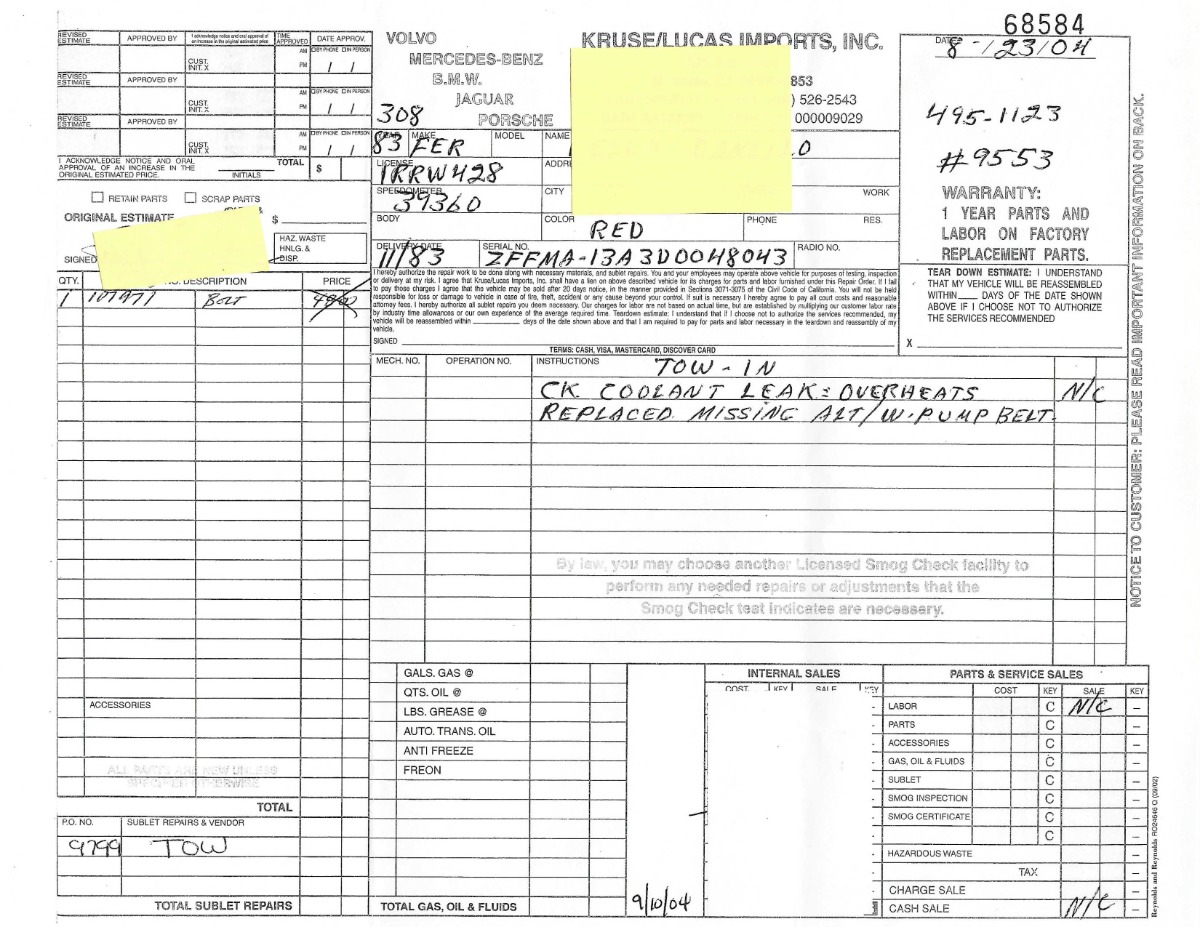 68584
REVISED ESTIMATE APPROVED BY I acknowledge notice and oral approval of an increase in the original estimated price. TIME APPROVED DATE APPROV.
CUST. INIT. X AM PM BY PHONE IN PERSON / /
REVISED ESTIMATE APPROVED BY
CUST. INIT. X AM PM BY PHONE IN PERSON / /
REVISED ESTIMATE APPROVED BY
CUST. INIT. X AM PM BY PHONE IN PERSON / /
I ACKNOWLEDGE NOTICE AND ORAL
APPROVAL OF AN INCREASE IN THE
ORIGINAL ESTIMATED PRICE.
INITIALS
TOTAL $
RETAIN PARTS SCRAP PARTS
ORIGINAL ESTIMATE $
SIGNED
HAZ. WASTE
HNLG. &
DISP.
VOLVO
MERCEDES-BENZ
B.M.W.
JAGUAR
PORSCHE
KRUSE/LUCAS IMPORTS, INC.
853
) 526-2543
000009029
DATE 8-/23/04
495-1123
#9553
308
YEAR 83 MAKE FER MODEL NAME
LICENSE 1RRW428
SPEEDOMETER 39360 CITY WORK
BODY COLOR RED PHONE RES.
DELIVERY DATE 11/83 SERIAL NO. ZFFMA-13A3D0048043 RADIO NO.
WARRANTY:
1 YEAR PARTS AND
LABOR ON FACTORY
REPLACEMENT PARTS.
TEAR DOWN ESTIMATE: I UNDERSTAND
THAT MY VEHICLE WILL BE REASSEMBLED
WITHIN____ DAYS OF THE DATE SHOWN
ABOVE IF I CHOOSE NOT TO AUTHORIZE
THE SERVICES RECOMMENDED
X
I hereby authorize the repair work to be done along with necessary materials, and sublet repairs. You and your employees may operate above vehicle for purposes of testing, inspection
or delivery at my risk. I agree that Kruse/Lucas Imports, Inc. shall have a lien on above described vehicle for its charges for parts and labor furnished under this Repair Order. If I fail
to pay those charges I agree that the vehicle may be sold after 20 days notice, in the manner provided in Sections 3071-3075 of the Civil Code of California. You will not be held
responsible for loss or damage to vehicle in case of fire, theft, accident or any cause beyond your control. If suit is necessary I hereby agree to pay all court costs and reasonable
attorney fees. I hereby authorize all sublet repairs you deem necessary. Our charges for labor are not based on actual time, but are established by multiplying our customer labor rate
by industry time allowances or our own experience of the average required time. Teardown estimate: I understand that if I choose not to authorize the services recommended, my
vehicle will be reassembled within ____ days of the date shown above and that I am required to pay for parts and labor necessary in the teardown and reassembly of my
vehicle.
SIGNED
TERMS: CASH, VISA, MASTERCARD, DISCOVER CARD
QTY. NO. DESCRIPTION PRICE
1 BELT
MECH. NO. OPERATION NO. INSTRUCTIONS
TOW-IN
CK COOLANT LEAK: OVERHEATS N/C
REPLACED MISSING ALT/W.PUMP BELT.
By law, you may choose another Licensed Smog Check facility to
perform any needed repairs or adjustments that the
Smog Check test indicates are necessary.
NOTICE TO CUSTOMER: PLEASE READ IMPORTANT INFORMATION ON BACK.
ACCESSORIES
ALL PARTS ARE NEW UNLESS
SPECIFIED OTHERWISE
TOTAL
P.O. NO. SUBLET REPAIRS & VENDOR
9799 TOW
TOTAL SUBLET REPAIRS
GALS. GAS @
QTS. OIL @
LBS. GREASE @
AUTO. TRANS. OIL
ANTI FREEZE
FREON
TOTAL GAS, OIL & FLUIDS
9/10/04
INTERNAL SALES
COST KEY SALE KEY
PARTS & SERVICE SALES
COST KEY SALE KEY
LABOR C N/C –
PARTS C –
ACCESSORIES C –
GAS, OIL & FLUIDS C –
SUBLET C –
SMOG INSPECTION C –
SMOG CERTIFICATE C –
C –
HAZARDOUS WASTE –
TAX –
CHARGE SALE –
CASH SALE N/C –
Reynolds and Reynolds RO24646 Q (09/02)